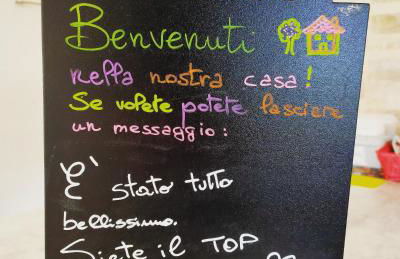 Benvenuti
nella nostra casa!
Se volete potete lasciare
un messaggio:
E' stato tutto
bellissimo.
Siete il TOP